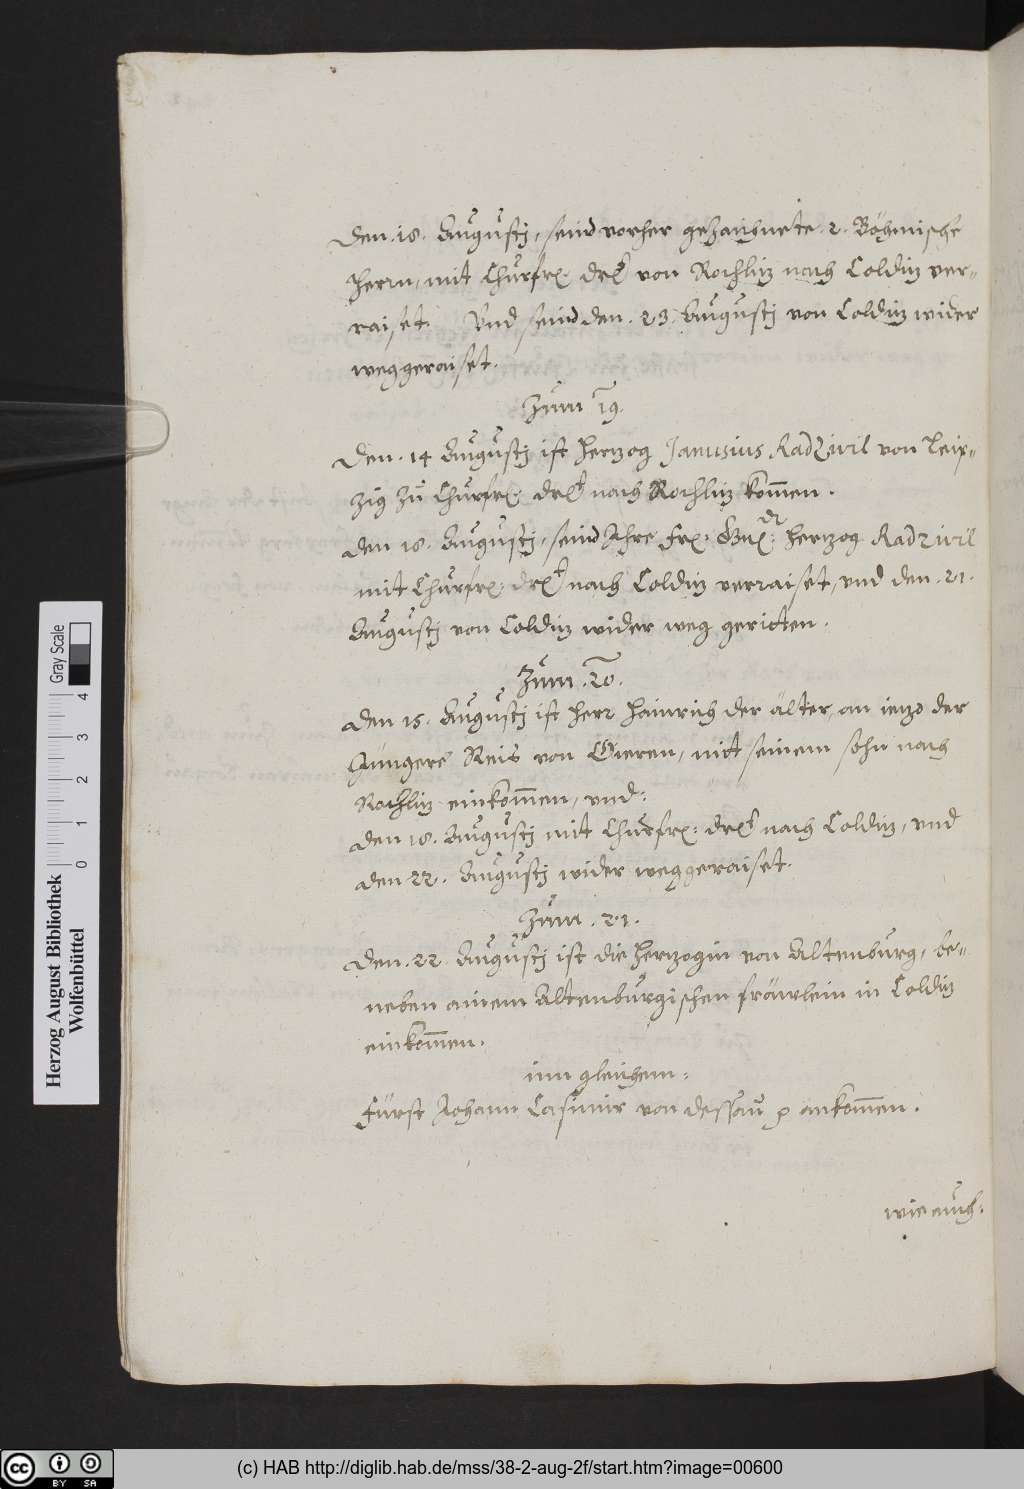 den .18. Augustj, seind vorher gezaichnete .2. Böhmische
Herrn, mit Churfr. drl. von Rochliz nach Coldiz ver-
raiset. Vnd seind den .23. Augustj von Coldiz wider
weggeraiset.
Zum 19.
Den .14 Augustj ist Herzog Janusius Radzivil von Leip-
zig zu Churfr. drl. nach Rochliz kommen.
den 18. Augustj, seind Ihre fr. Gn. Herzog Radzivil
mit Churfr. drl. nach Coldiz verraiset, vnd den .21.
Augustj von Coldiz wider weg geritten.
Zum .20.
den 15. Augustj ist Herr Hainrich der älter, an iezo der
Jüngere Reis von Gieren, mit seinem sohn nach
Rochliz einkommen, vnd:
den 18. Augustj mit Churfr: drl. nach Coldiz, vnd
den 22. Augustj wider weggeraiset.
Zum .21.
Den .22. Augustj ist die Herzogin von Altenburg, be-
neben ainem Altenburgischen fräwlein in Coldiz
einkommen.
inn gleichem:
Fürst Johann Casimir von dessau ankommen.
wie auch.
Herzog August Bibliothek
Wolfenbüttel
Gray Scale
0 1 2 3 4
cc BY SA
(c) HAB http://diglib.hab.de/mss/38-2-aug-2f/start.htm?image=00600